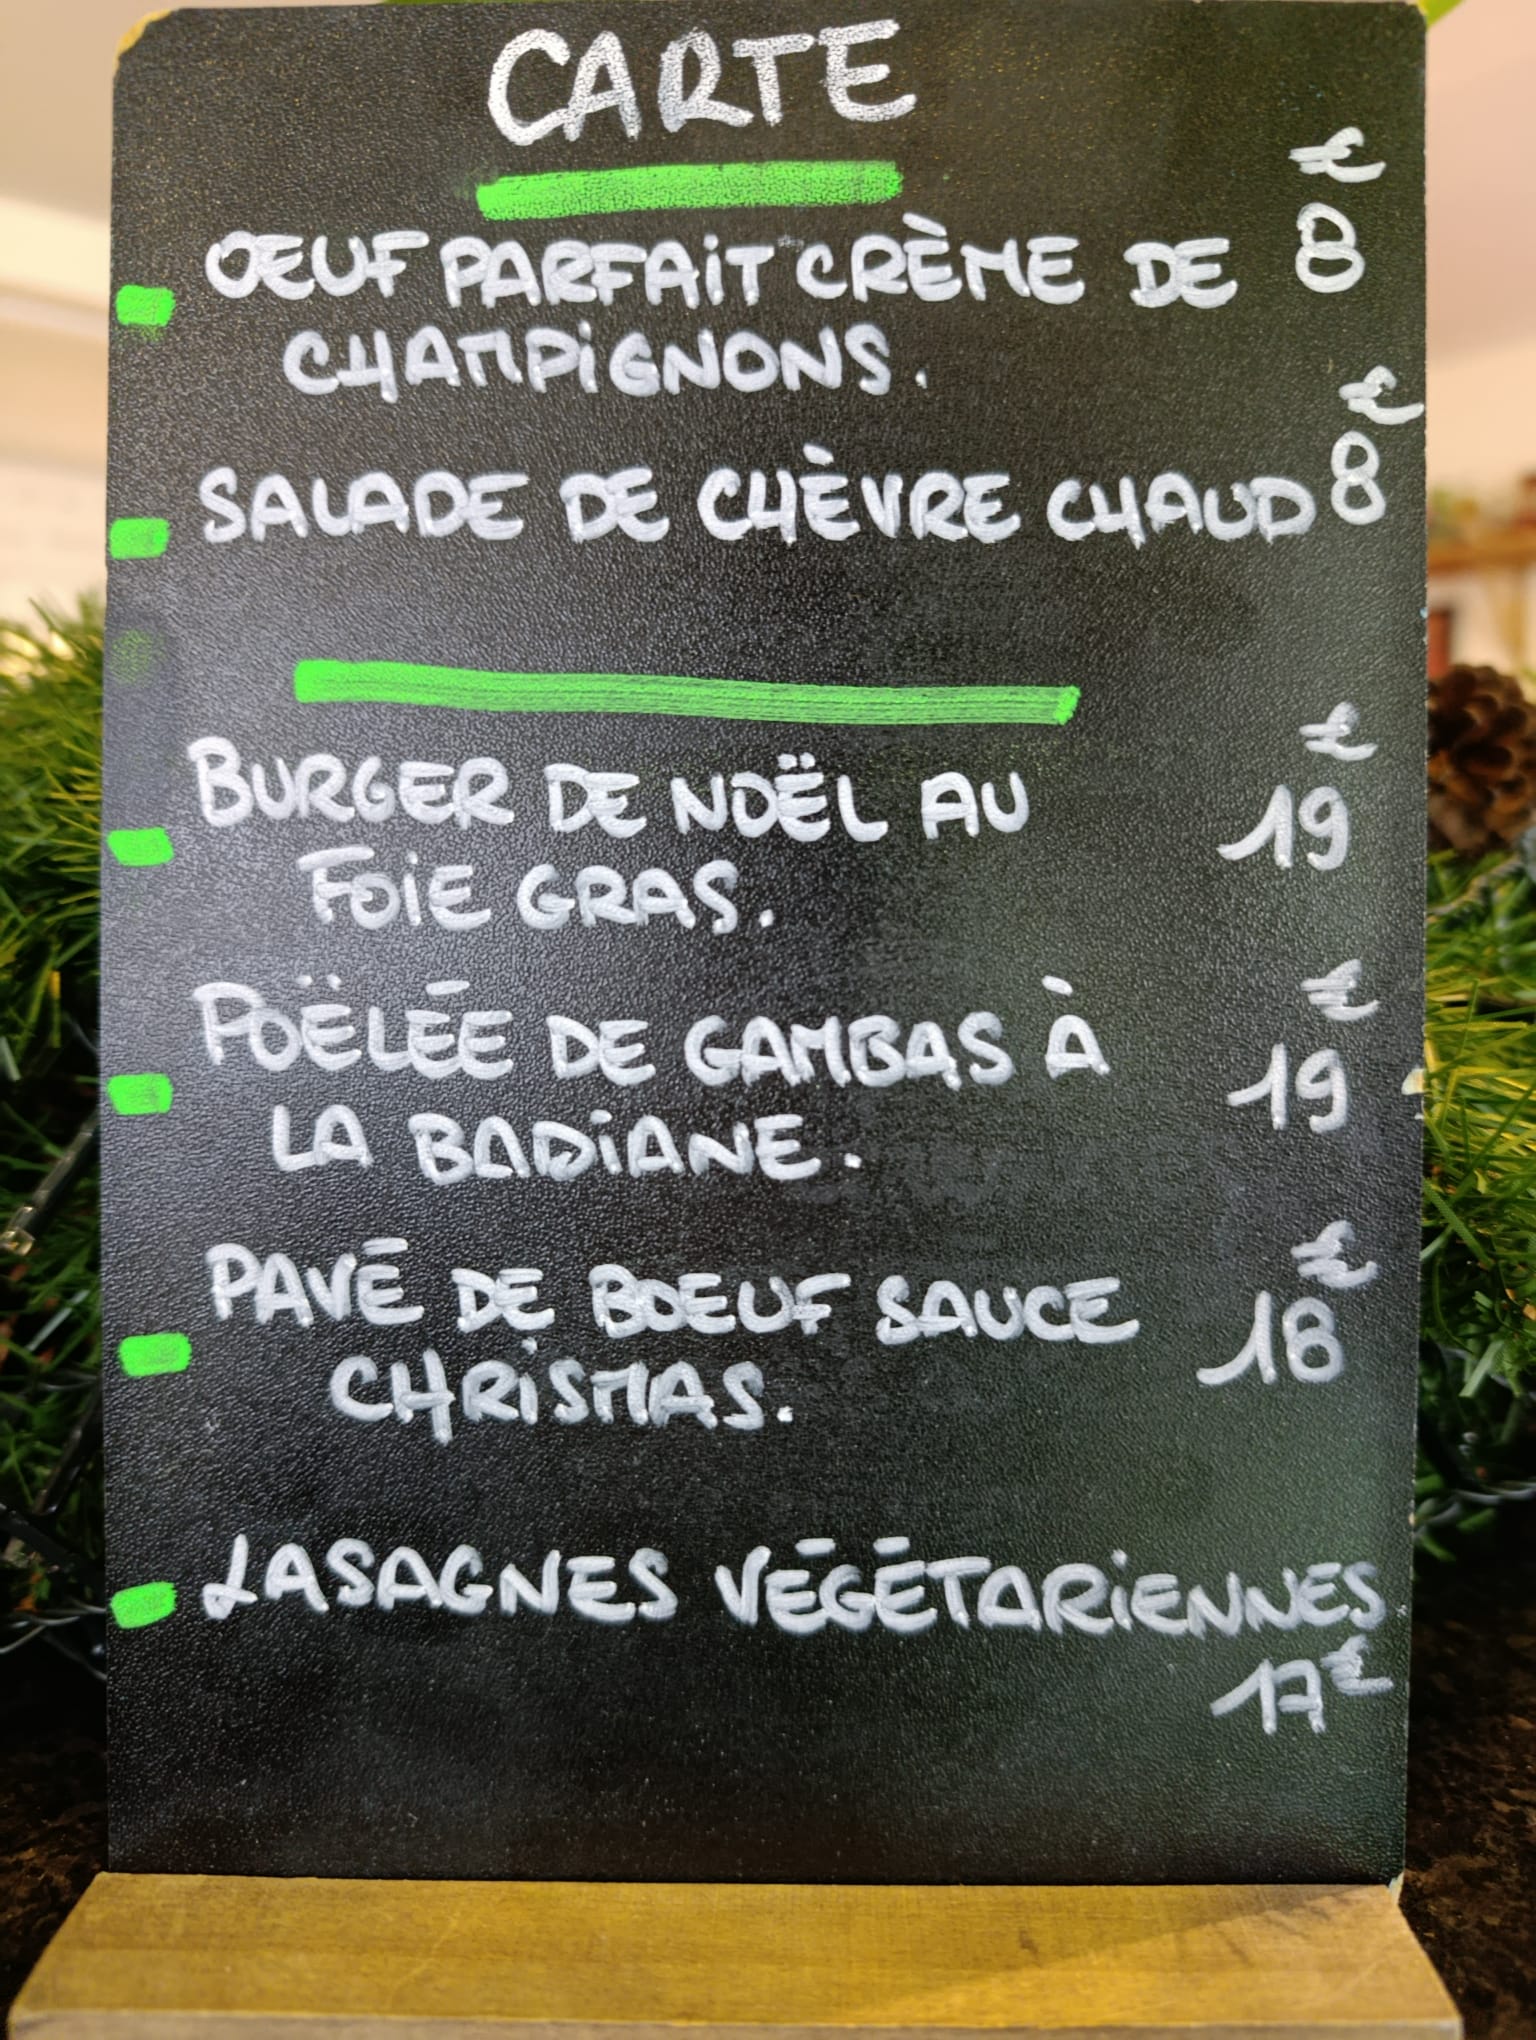 CARTE
ŒUF PARFAIT CRÈME DE 8€
CHAMPIGNONS.
SALADE DE CHÈVRE CHAUD 8€
BURGER DE NOËL AU 19€
FOIE GRAS.
POËLÉE DE GAMBAS À 19€
LA BADIANE.
PAVÉ DE BOEUF SAUCE 18€
CHRISMAS.
LASAGNES VÉGÉTARIENNES
17€